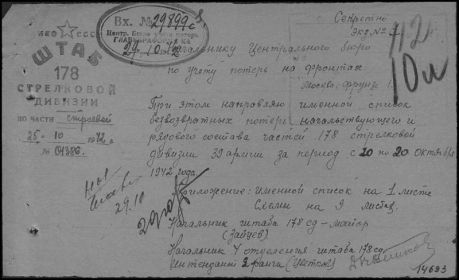 НКО СССР
ШТАБ
178
СТРЕЛКОВОЙ
ДИВИЗИИ
ПО ЧАСТИ строевой
25.10 1942 г.
№ 01386
Вх. № 29899с
29.10
Секретно
Экз. №
Начальнику Центрального бюро
по учету потерь на фронтах
Москва-Фрунзе
При этом направляю именной список
безвозвратных потерь начальствующего и
рядового состава частей 178 стрелковой
дивизии 39 армии за период с 10 по 20 октября
1942 года.
Приложение: именной список на 1 листе
Схемы на 9 листах.
Начальник штаба 178 сд - майор
(Зайцев)
Начальник 4 отделения штаба 178 сд
Интендант 2 ранга
29.10
14693